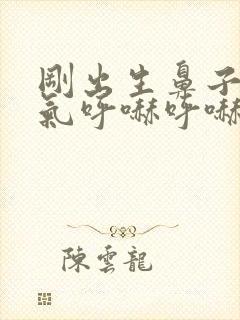 剛出生鼻子
氣呼嚇呼嚇
陳雲龍